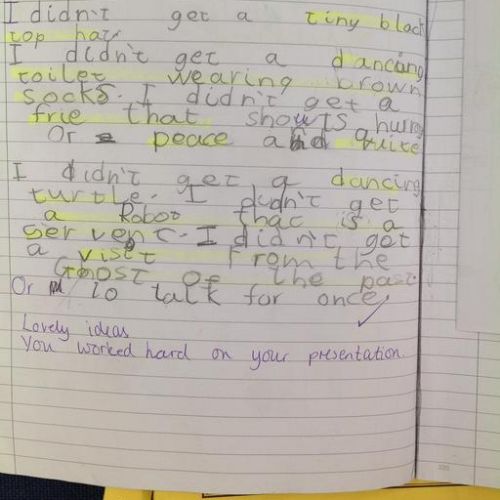 I didn't get a tiny black
top hat.
I didn't get a dancing
toilet wearing brown
socks. I didn't get a
frie that shouts hurry
Or a peace and quite
I didn't get a dancing
turtle. I didn't get
a Robot that is a
servent. I didn't get
a visit from the
Ghost of the past
Or to talk for once,
Lovely ideas
You worked hard on your presentation.